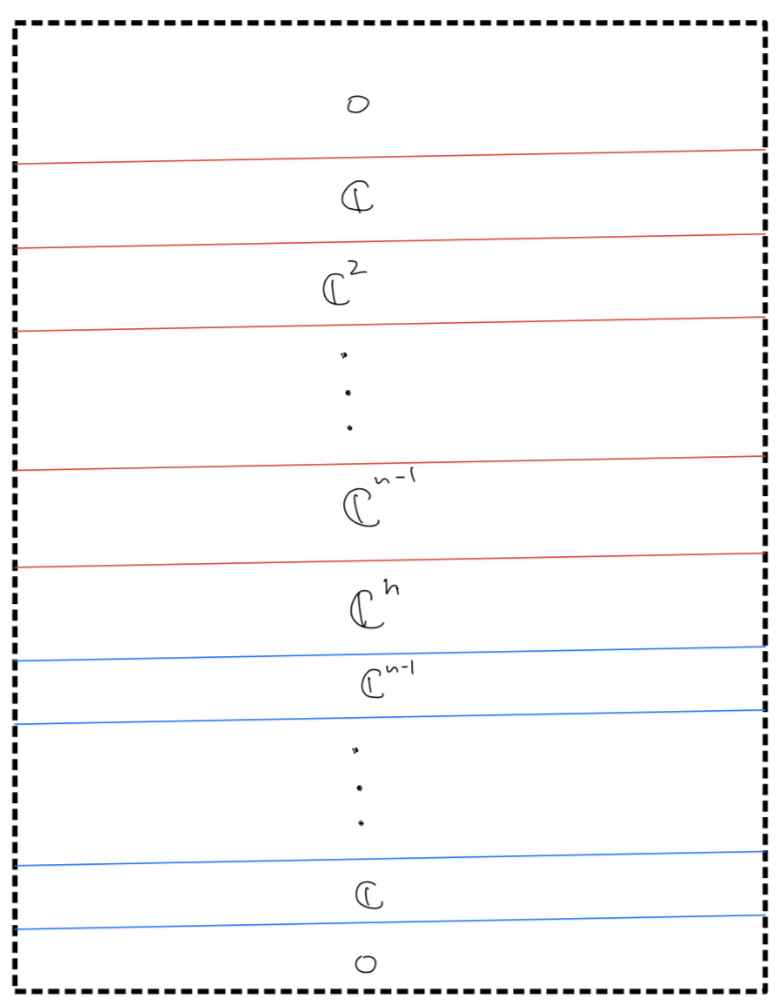 0
ℂ
ℂ²
⋮
ℂⁿ⁻¹
ℂⁿ
ℂⁿ⁻¹
⋮
ℂ
0